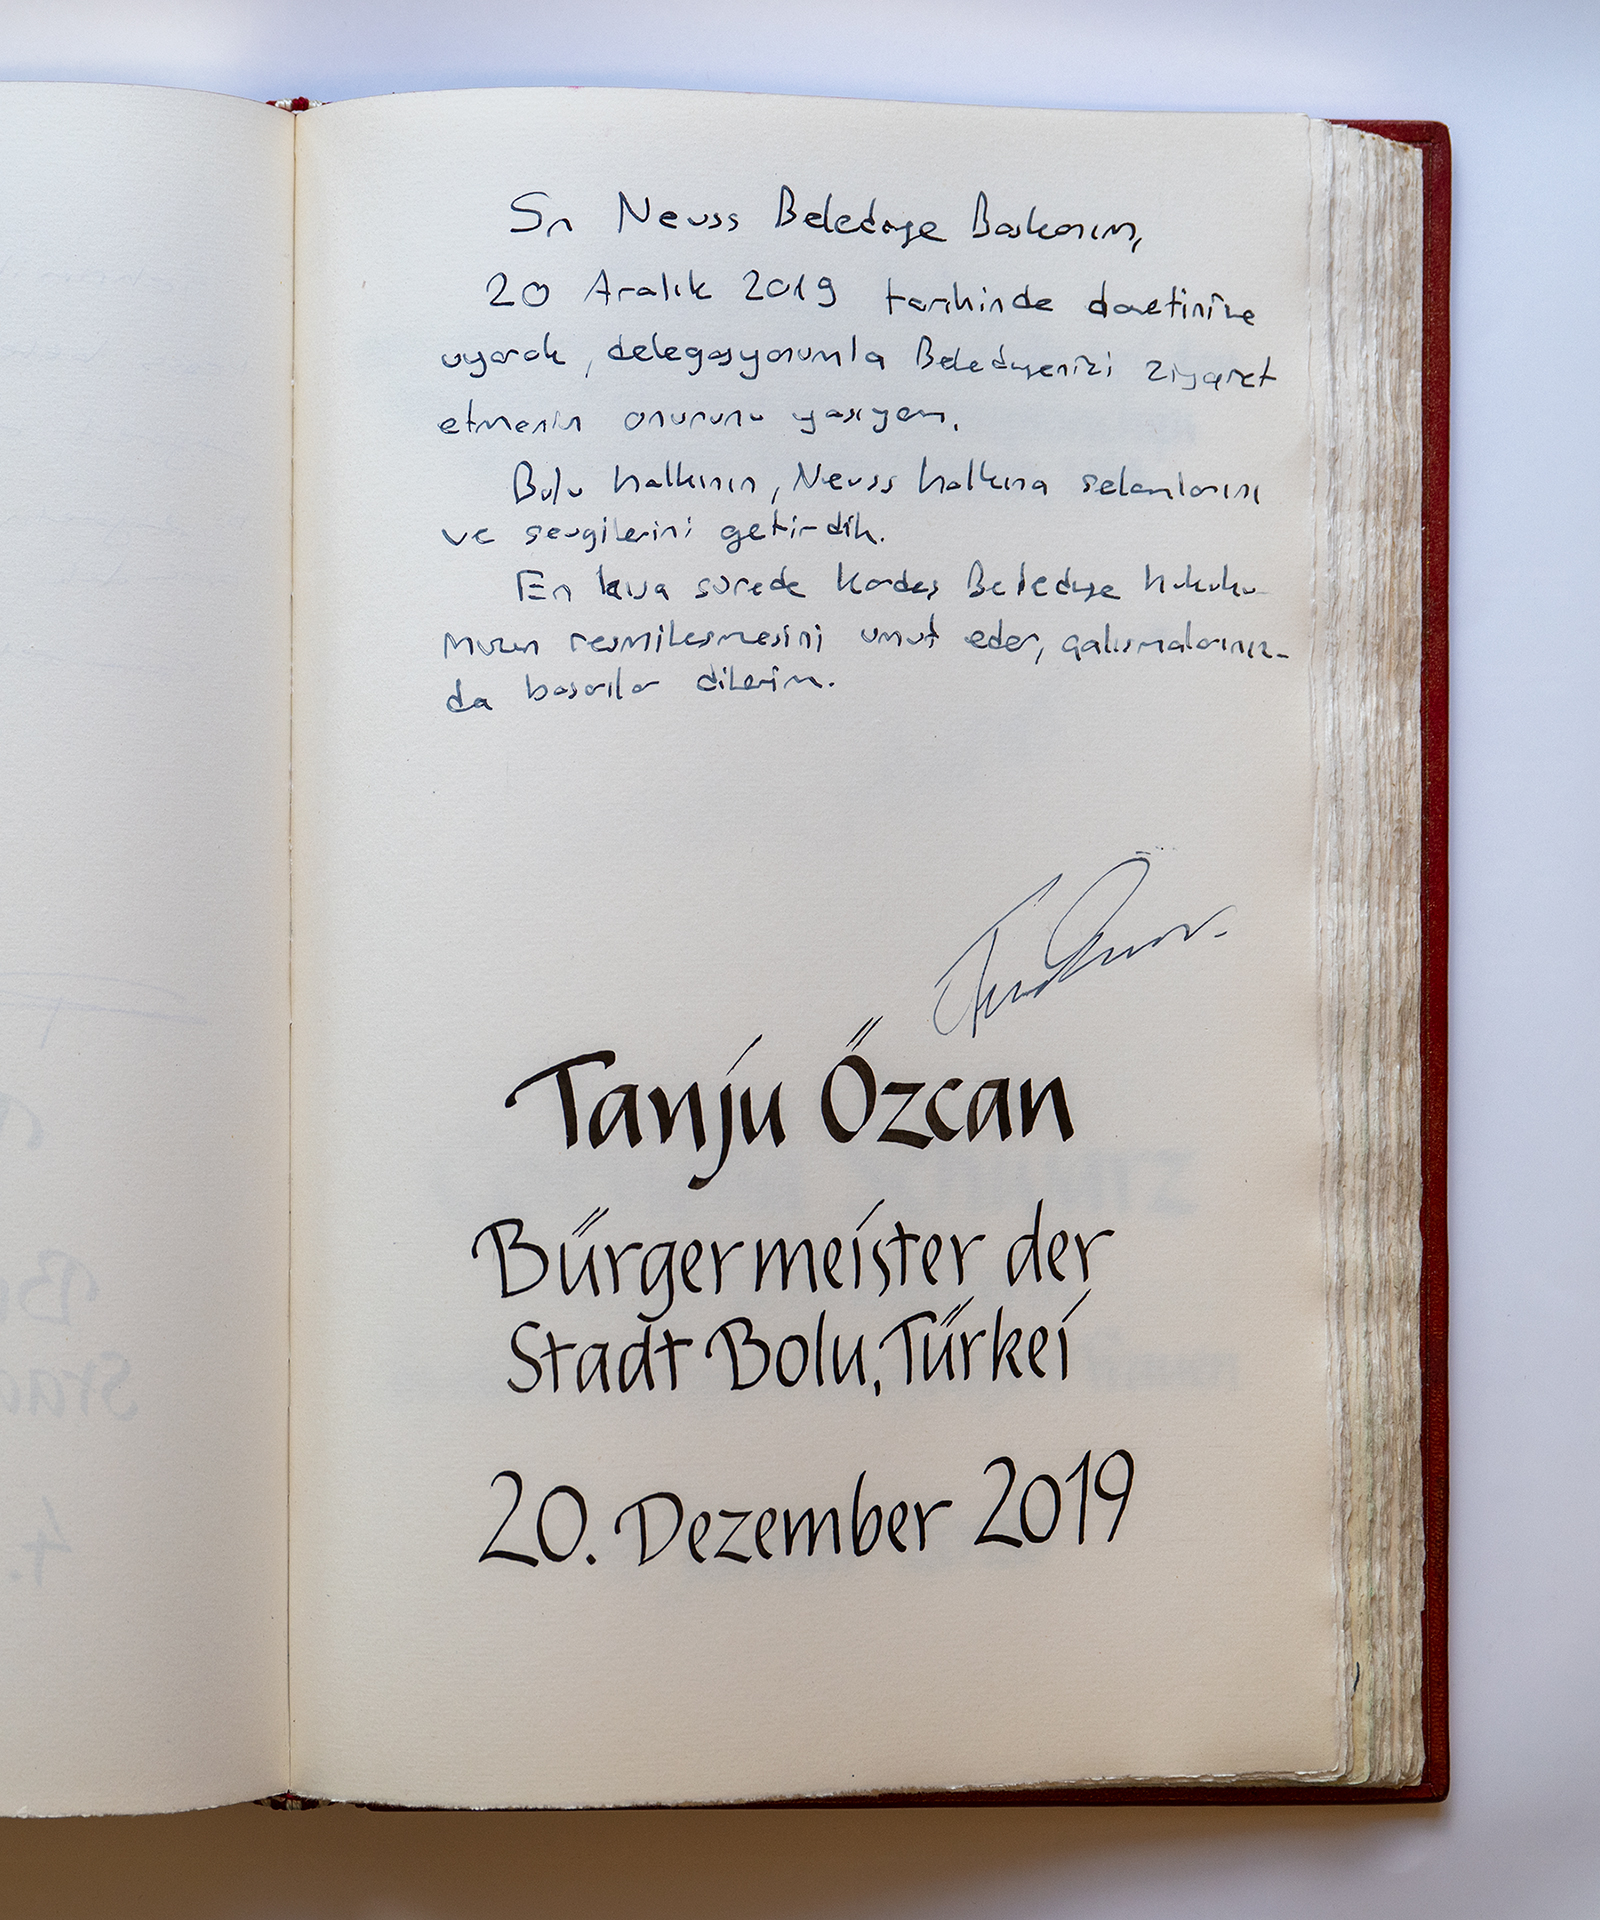 Sn Neuss Belediye Başkanım,
20 Aralık 2019 tarihinde davetinize
uyarak, delegasyonumla Belediyenizi ziyaret
etmenin onurunu yaşıyorum.
Bolu halkının, Neuss halkına selamlarını
ve sevgilerini getirdik.
En kısa sürede Kardeş Belediye hukuku-
muzun resmileşmesini umut eder, çalışmalarınız-
da başarılar dilerim.
Tanju Özcan
Bürgermeister der
Stadt Bolu, Türkei
20. Dezember 2019